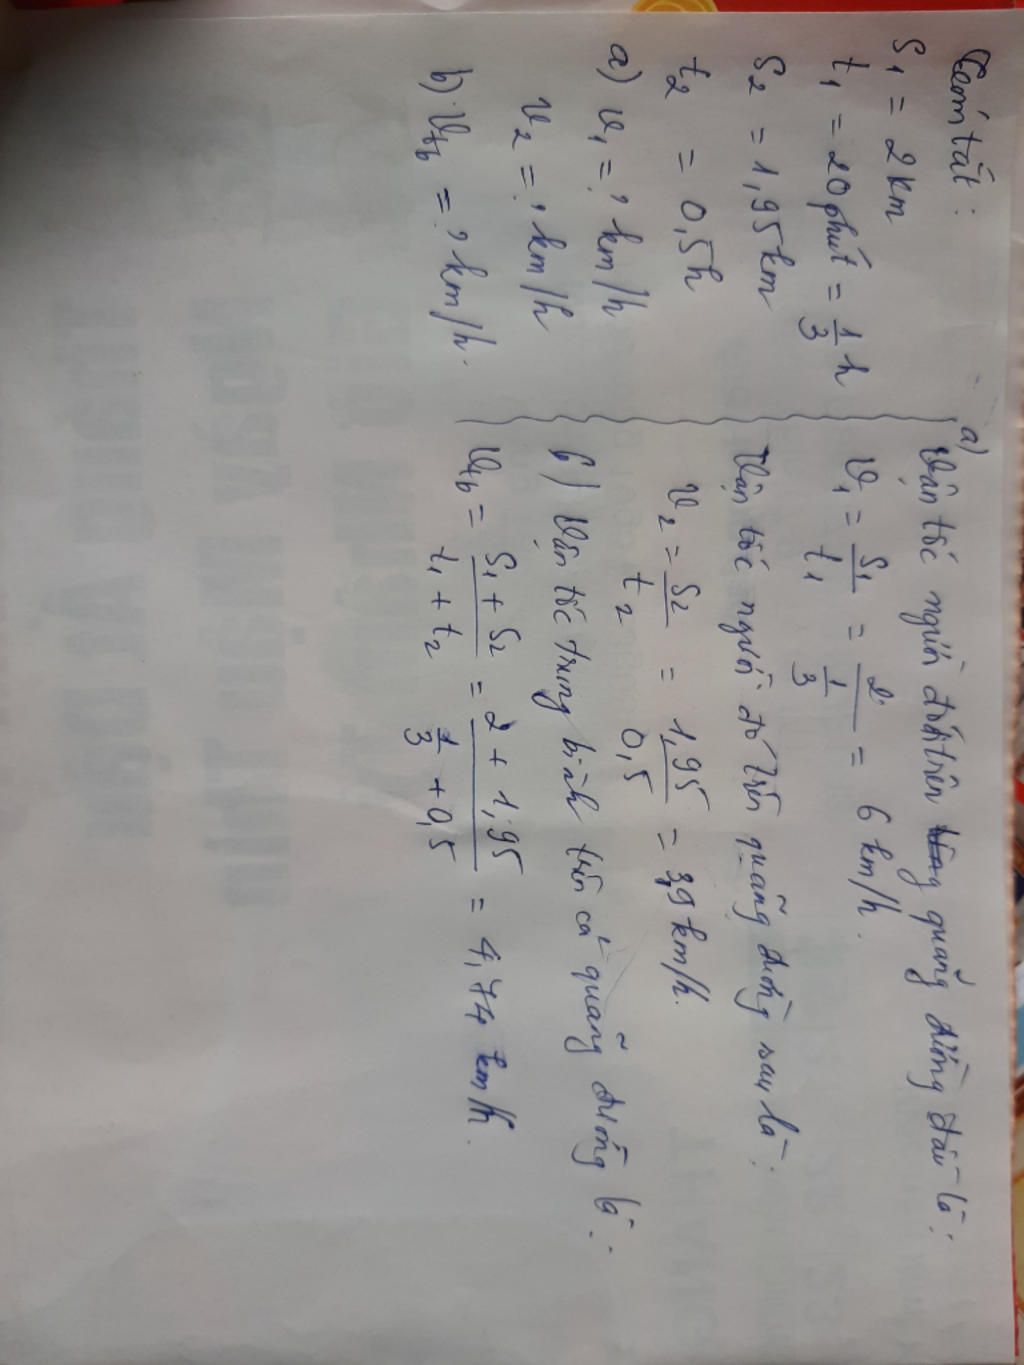 Tóm tắt:
S1 = 2 km
t1 = 20 phút = 1/3 h
S2 = 1,95 km
t2 = 0,5h
a) v1 = ? km/h
v2 = ? km/h
b) vtb = ? km/h.
a)
Vận tốc người đó trên quãng đường đầu là:
v1 = S1/t1 = 2/(1/3) = 6 km/h.
Vận tốc người đó trên quãng đường sau là:
v2 = S2/t2 = 1,95/0,5 = 3,9 km/h.
b) Vận tốc trung bình trên cả quãng đường là:
vtb = (S1 + S2)/(t1 + t2) = (2 + 1,95)/(1/3 + 0,5) = 4,74 km/h.